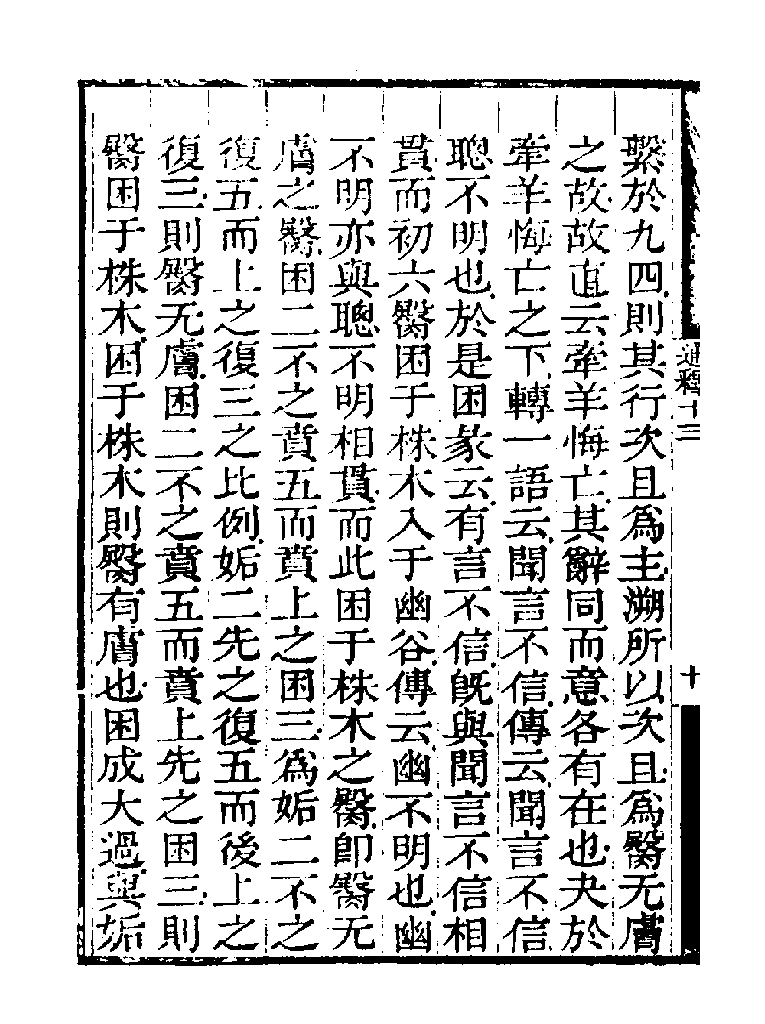 繫於九四則其行次且爲主溯所以次且爲臀无膚
之故故直云牽羊悔亡其辭同而意各有在也夬於
牽羊悔亡之下轉一語云聞言不信傳云聞言不信
聰不明也於是困彖云有言不信旣與聞言不信相
貫而初六臀困于株木入于幽谷傳云幽不明也幽
不明亦與聰不明相貫而此困于株木之臀卽臀无
膚之臀困二不之賁五而賁上之困三爲姤二不之
復五而上之復三之比例姤二先之復五而後上之
復三則臀无膚困二不之賁五而賁上先之困三則
臀困于株木困于株木則臀有膚也困成大過與姤
通釋十三
十